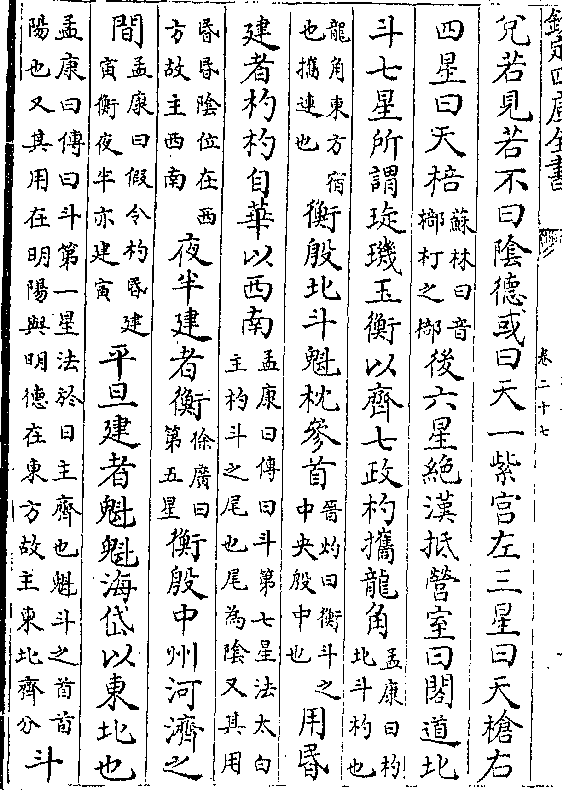 欽定四庫全書
卷二十七
兌若見若不曰陰德或曰天一紫宫左三星曰天槍右
四星曰天棓蘇林曰音榔朾之榔後六星絶漢抵營室曰閣道北
斗七星所謂琁璣玉衡以齊七政杓攜龍角孟康曰杓北斗杓也
龍角東方宿也攜連也衡殷北斗魁枕參首晉灼曰衡斗之中央殷中也用昏
建者杓杓自華以西南孟康曰傳曰斗第七星法太白主杓斗之尾也尾為陰又其用
昏昏陰位在西方故主西南夜半建者衡徐廣曰第五星衡殷中州河濟之
間孟康曰假令杓昏建寅衡夜半亦建寅平旦建者魁魁海岱以東北也
孟康曰傳曰斗第一星法於日主齊也魁斗之首首陽也又其用在明陽與明德在東方故主東北齊分斗